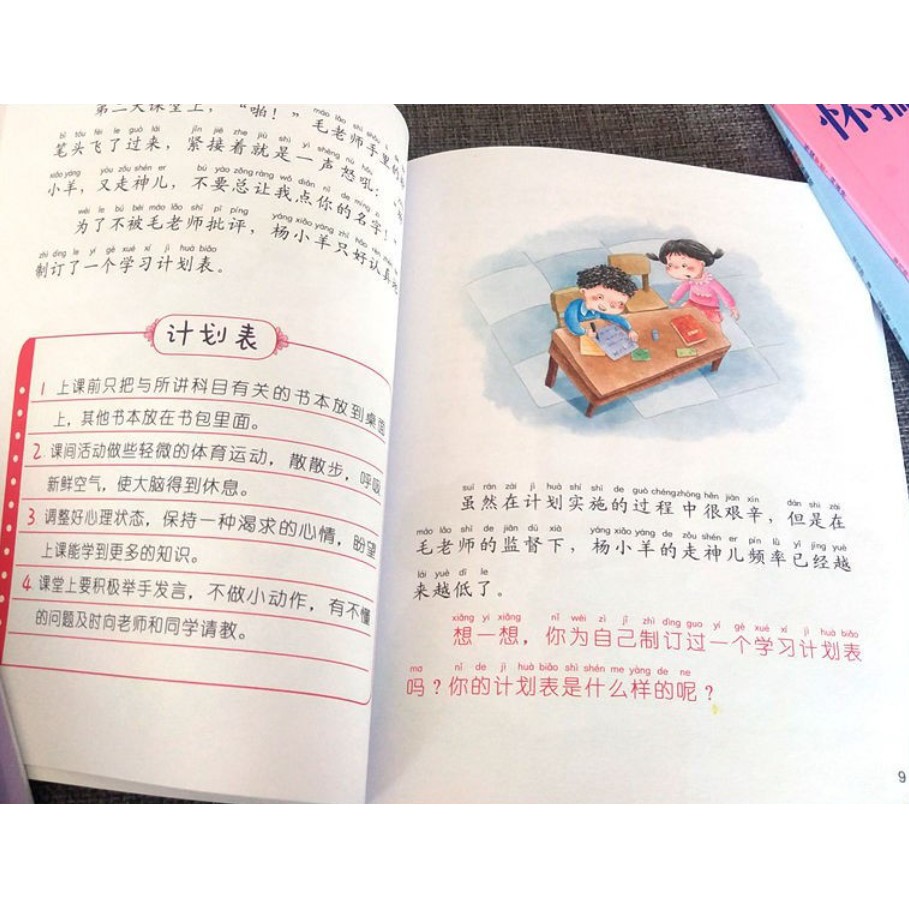 第二天课堂上，“啪！”毛老师手里的
bǐ tóu fēi le guò lái jǐn jiē zhe jiù shì yì shēng nù hǒu
笔头飞了过来，紧接着就是一声怒吼：
xiǎo yáng yòu zǒu shén er bú yào zǒng ràng wǒ diǎn nǐ de míng zì
小羊，又走神儿，不要总让我点你的名字！”
wèi le bú bèi máo lǎo shī pī píng yáng xiǎo yáng zhǐ hǎo rèn zhēn
为了不被毛老师批评，杨小羊只好认真地
zhì dìng le yí gè xué xí jì huà biǎo
制订了一个学习计划表。
计划表
1 上课前只把与所讲科目有关的书本放到桌面
上，其他书本放在书包里面。
2. 课间活动做些轻微的体育运动，散散步，呼吸
新鲜空气，使大脑得到休息。
3 调整好心理状态，保持一种渴求的心情，盼望
上课能学到更多的知识。
4. 课堂上要积极举手发言，不做小动作，有不懂
的问题及时向老师和同学请教。
suī rán zài jì huà shí shī de guò chéng zhōng hěn jiān xīn dàn shì zài
虽然在计划实施的过程中很艰辛，但是在
máo lǎo shī de jiān dū xià yáng xiǎo yáng de zǒu shén er pín lǜ yǐ jīng yuè
毛老师的监督下，杨小羊的走神儿频率已经越
lái yuè dī le
来越低了。
xiǎng yi xiǎng nǐ wèi zì jǐ zhì dìng guo yí gè xué xí jì huà biǎo
想一想，你为自己制订过一个学习计划表
ma nǐ de jì huà biǎo shì shén me yàng de ne
吗？你的计划表是什么样的呢？
9